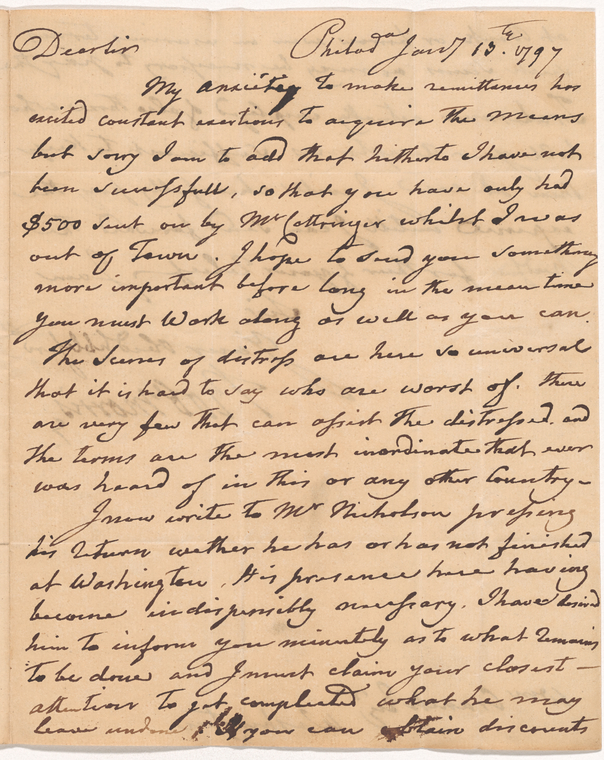 Dear sir Philad.a Jan.y 13.th 1797
My anxiety to make remittances has
excited constant exertions to acquire the means
but sorry I am to add that hitherto I have not
been sucessfull, so that you have only had
$500 sent on by Mr Cottringer whilst I was
out of Town. I hope to send you something
more important before long in the mean time
you must Work along as well as you can.
The Scenes of distress are here so universal
that it is hard to say who are worst of. there
are very few that can assist the distressed. and
the terms are the most inordinate that ever
was heard of in this or any other Country–
I now write to Mr Nicholson pressing
his return wether he has or has not finished
at Washington. His presence here having
become indispensibly necessary. I have desired
him to inform you minutely as to what remains
to be done and I must claim your closest–
attention to get compleated what he may
leave undone. If you can obtain discounts